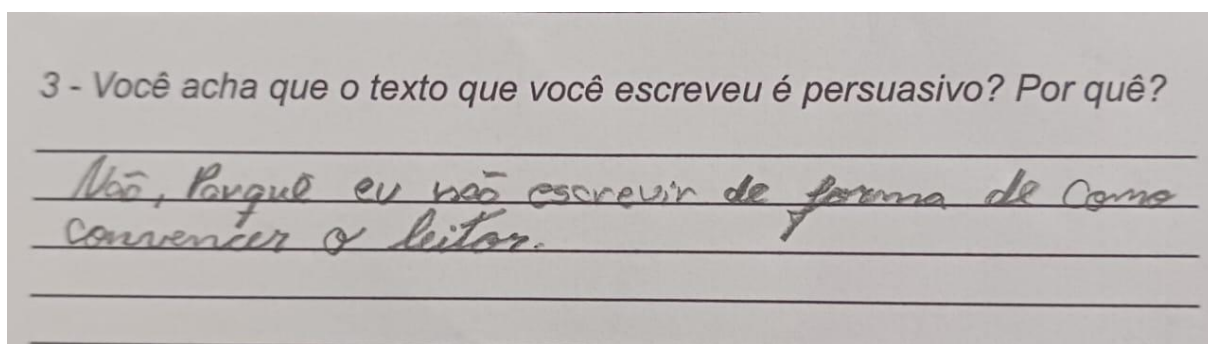 3 - Você acha que o texto que você escreveu é persuasivo? Por quê?
Não, Porquê eu não escrevir de forma de Como
convencer o leitor.